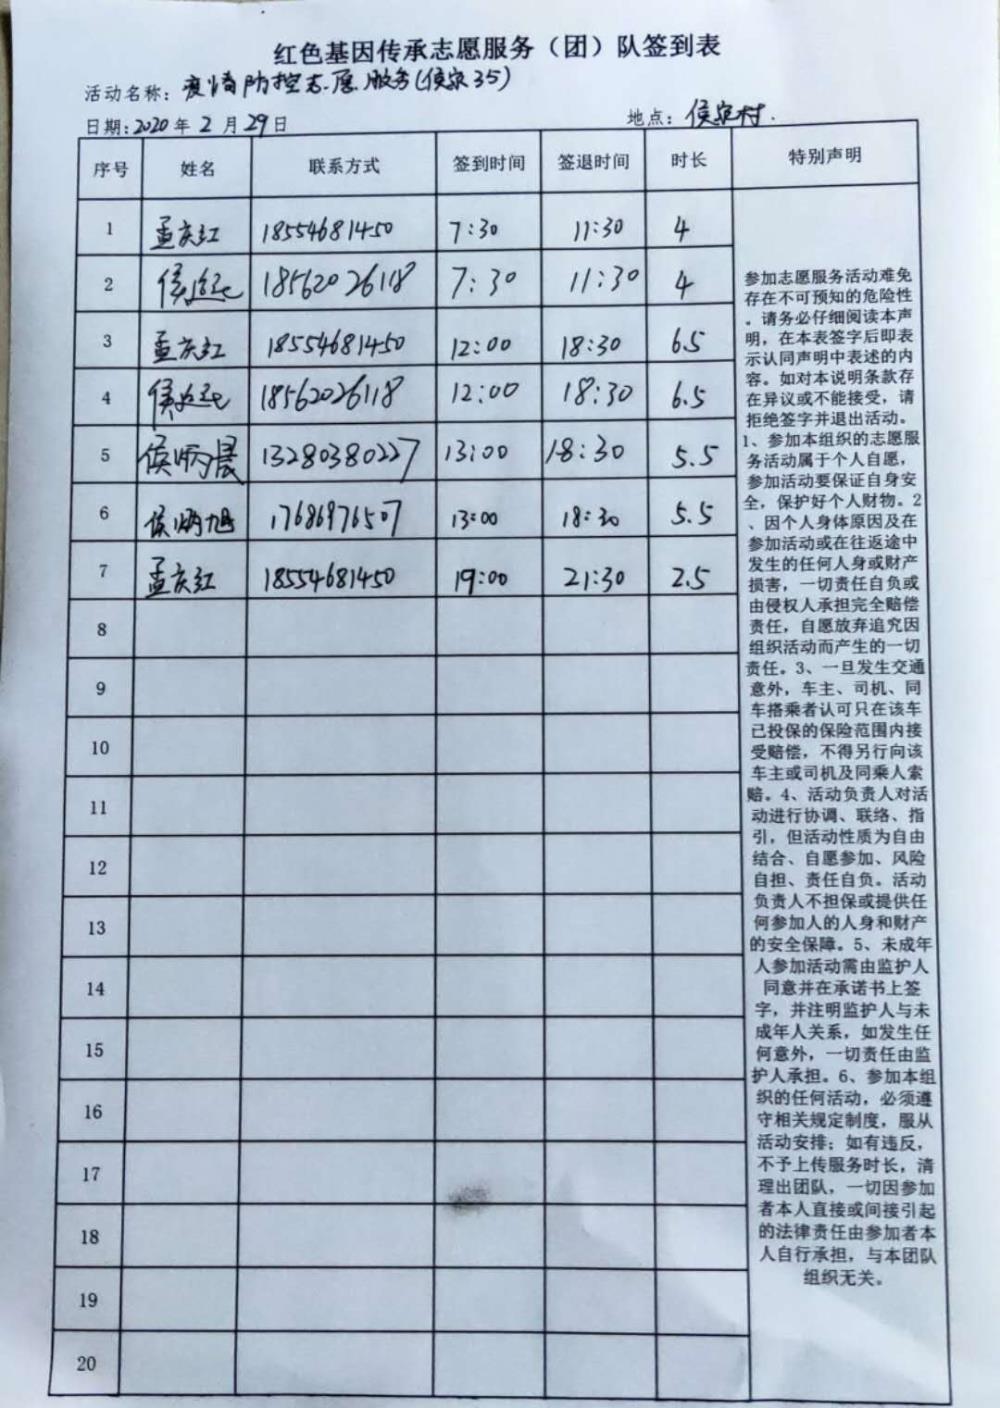 红色基因传承志愿服务（团）队签到表
活动名称：疫情防控志愿服务(侯家35)
日期：2020年2月29日 地点：侯家村.
序号 姓名 联系方式 签到时间 签退时间 时长 特别声明
1 孟庆红 18554681450 7:30 11:30 4
2 侯延 18562026118 7:30 11:30 4
3 孟庆红 18554681450 12:00 18:30 6.5
4 侯延 18562026118 12:00 18:30 6.5
5 侯炳晨 13280380227 13:00 18:30 5.5
6 侯炳旭 17686976507 13:00 18:30 5.5
7 孟庆红 18554681450 19:00 21:30 2.5
8
9
10
11
12
13
14
15
16
17
18
19
20
参加志愿服务活动难免
存在不可预知的危险性
。请务必仔细阅读本声
明，在本表签字后即表
示认同声明中表述的内
容。如对本说明条款存
在异议或不能接受，请
拒绝签字并退出活动。
1、参加本组织的志愿服
务活动属于个人自愿，
参加活动要保证自身安
全，保护好个人财物。2
、因个人身体原因及在
参加活动或在往返途中
发生的任何人身或财产
损害，一切责任自负或
由侵权人承担完全赔偿
责任，自愿放弃追究因
组织活动而产生的一切
责任。3、一旦发生交通
意外，车主、司机、同
车搭乘者认可只在该车
已投保的保险范围内接
受赔偿，不得另行向该
车主或司机及同乘人索
赔。4、活动负责人对活
动进行协调、联络、指
引，但活动性质为自由
结合、自愿参加、风险
自担、责任自负。活动
负责人不担保或提供任
何参加人的人身和财产
的安全保障。5、未成年
人参加活动需由监护人
同意并在承诺书上签
字，并注明监护人与未
成年人关系，如发生任
何意外，一切责任由监
护人承担。6、参加本组
织的任何活动，必须遵
守相关规定制度，服从
活动安排；如有违反，
不予上传服务时长，清
理出团队，一切因参加
者本人直接或间接引起
的法律责任由参加者本
人自行承担，与本团队
组织无关。